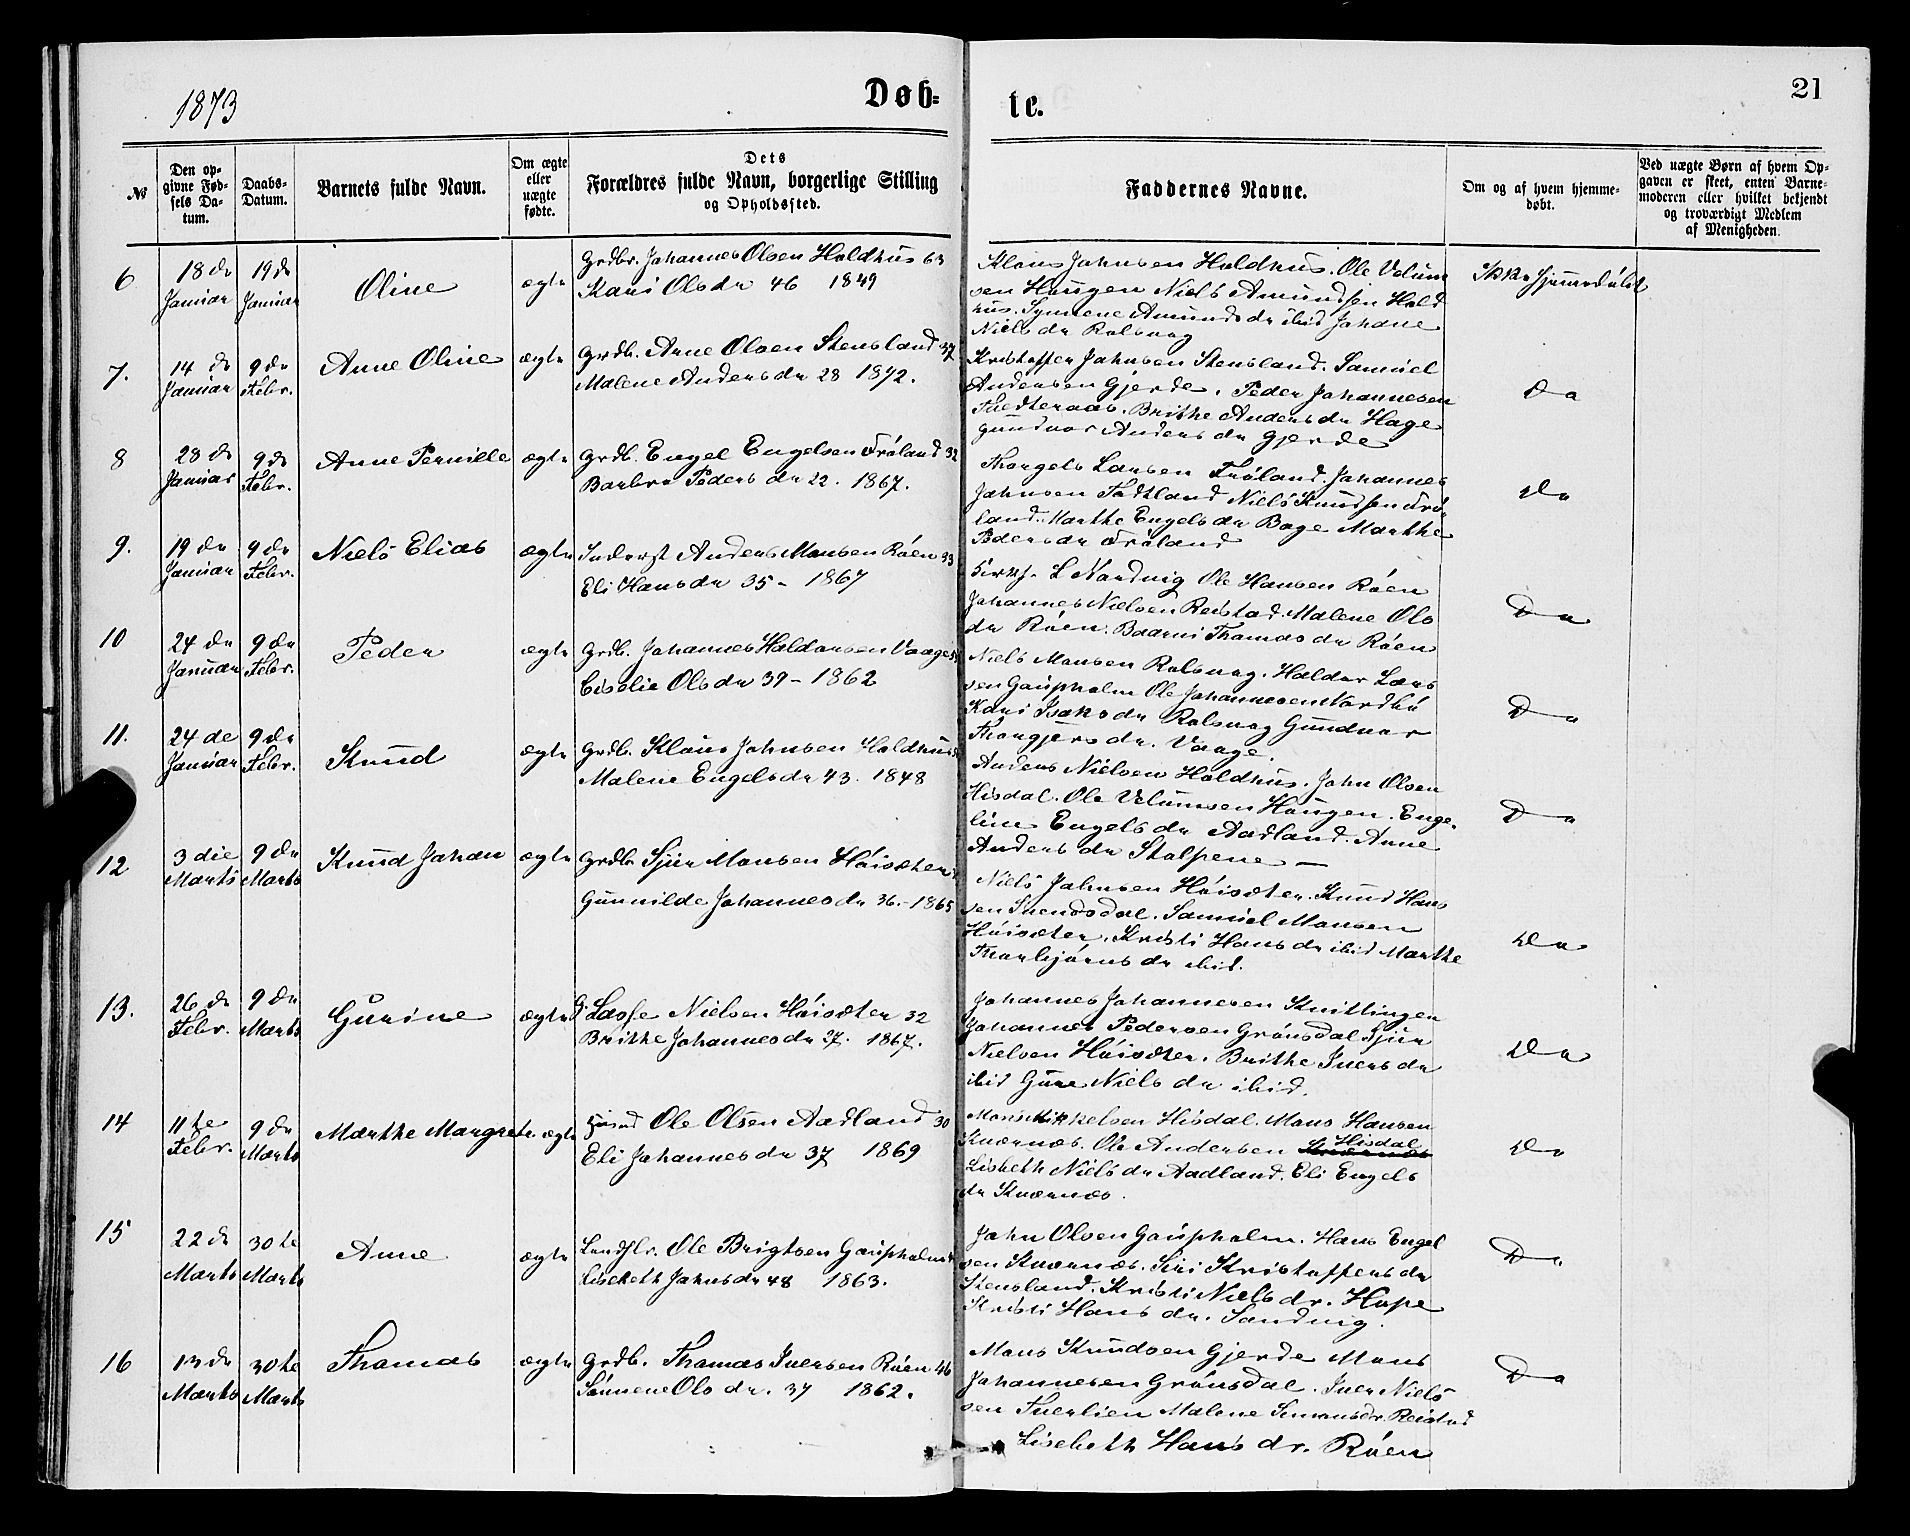 1873
Døb=
te.
21
№
Den op-
givne Fød-
sels Da-
tum.
Daabs-
Datum.
Barnets fulde Navn.
Om ægte
eller
uægte
fødte.
Dets
Forældres fulde Navn, borgerlige Stilling
og Opholdssted.
Faddernes Navne.
Om og af hvem hjemme-
døbt.
Ved uægte Børn af hvem Op-
gaven er skeet, enten Barne-
moderen eller hvilket bekjendt
og troværdigt Medlem
af Menigheden.
6
18de
Januar
19de
Januar
Oline
ægte
Grdbr. Johannes Olsen Holdhus
Kari Olsdr 46 1849
Klaus Johnsen Holdhus. Ole Velum
sen Haugen Niels Amundsen Hold
hus. Synneve Amundsdr ibid Johane
Nielsdr Rolsvag
Ikke hjemmedøbt
7.
14de
Januar
9de
Febr.
Anne Oline
ægte
Grdb. Arne Olsen Stensland 37
Malene Andersdr 28 1872.
Kristoffer Johnsen Stensland. Samuel
Andersen Gjerde. Peder Johannesen
Tuedteraas. Brithe Andersdr Hage
Gundvor Andersdr Gjerde
Do
8
28de
Januar
9de
Febr.
Anne Pernille
ægte
Grdb. Engel Engelsen Frøland 32
Barbra Pedersdr 22. 1867.
Thorgels Larsen Frøland. Johannes
Johnsen Todtland Niels Knudsen Frø-
land. Marthe Engelsdr Boge Marthe
Pedersdr Frøland
Do
9.
19de
Januar
9de
Febr.
Niels Elias
ægte
Inderst Anders Monsen Røen 33
Eli Hansdr 35 - 1867
Kirks. L Nordvig Ole Hansen Røen
Johannes Nielsen Reistad. Malene Ols
dr Røen. Baarni Thomasdr Røen
Do
10
24de
Januar
9de
Febr.
Peder
ægte
Grdb. Johannes Haldorsen Vaage
Ciselie Olsdr 39 - 1862
Niels Monsen Rolsvag. Haldor Lars
sen Gaupholm Ole Johannesen Nordbø
Kari Isaksdr Rolsvag Gundvor
Thorgjersdr. Vaage.
Do
11.
24de
Januar
9de
Febr.
Knud
ægte
Grdb. Klaus Johnsen Holdhus
Malene Engelsdr 43. 1848
Anders Nielsen Holdhus. John Olsen
Hisdal. Ole Velumsen Haugen. Enge-
line Engelsdr Aadland. Anne
Andersdr Stolpene —
Do
12
3die
Marts
9de
Marts
Knud Johan
ægte
Grdb Sjur Monsen Høisæter
Gunnilde Johannesdr 36. - 1865
Niels Johnsen Høisæter. Knud Hans
sen Svendsdal. Samuel Monsen
Høisæter. Kristi Hansdr ibid Marthe
Thorbjørnsdr ibid.
Do
13.
26de
Febr.
9de
Marts
Gurine
ægte
G. Lasse Nielsen Høisæter 32
Brithe Johannesdr 27. 1867.
Johannes Johannesen Knittingen
Johannes Pedersen Grønsdal Sjur
Nielsen Høisæter. Brithe Iversdr
ibid Gure Nielsdr ibid.
Do
14
11te
Febr.
9de
Marts
Marthe Margrete.
ægte
Ole Olsen Aadland 30
Eli Johannesdr 37 1869
Mons Mikkelsen Hisdal. Mons Hansen
Kuernæs. Ole Andersen Hisdal
Lisbeth Nielsdr Aadland. Eli Engels
dr Kuernæs.
Do
15
22de
Marts
30te
Marts
Anne
ægte
Ole Brigtsen Gaupholm
Lisebeth Johnsdr 48 1863.
John Olsen Gaupholm. Hans Engel
sen Kuernæs. Siri Kristoffersdr
Stensland. Kristi Nielsdr. Hope
Kristi Hansdr. Sandvig.
Do
16
13de
Marts
30te
Marts
Thomas
ægte
Grdb. Thomas Iversen Røen 46
Sønneve Olsdr. 37 1862.
Mons Knudsen Gjerde Mons
Johannesen Grønsdal. Iver Niels
sen Tuerlien Malene Simonsdr. Reistad
Lisebeth Hansdr. Røen
Do